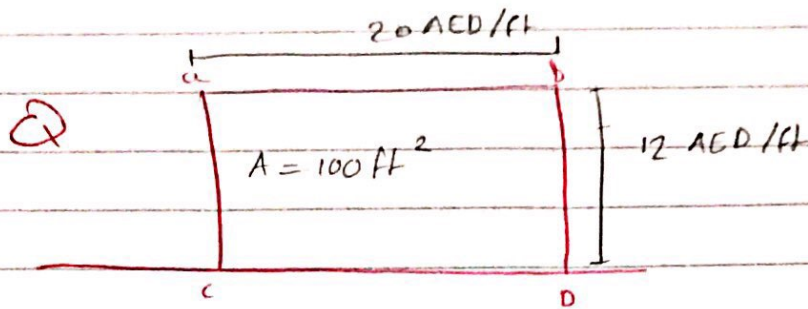 20 AED/ft
a b
Q
A = 100 ft²
12 AED/ft
C D